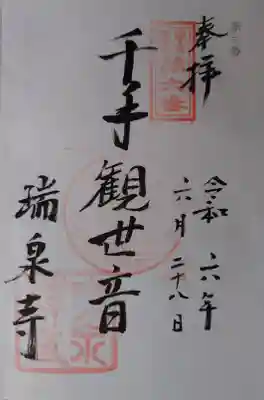 奉拝
令和六年
六月二十八日
千手観世音
瑞泉寺